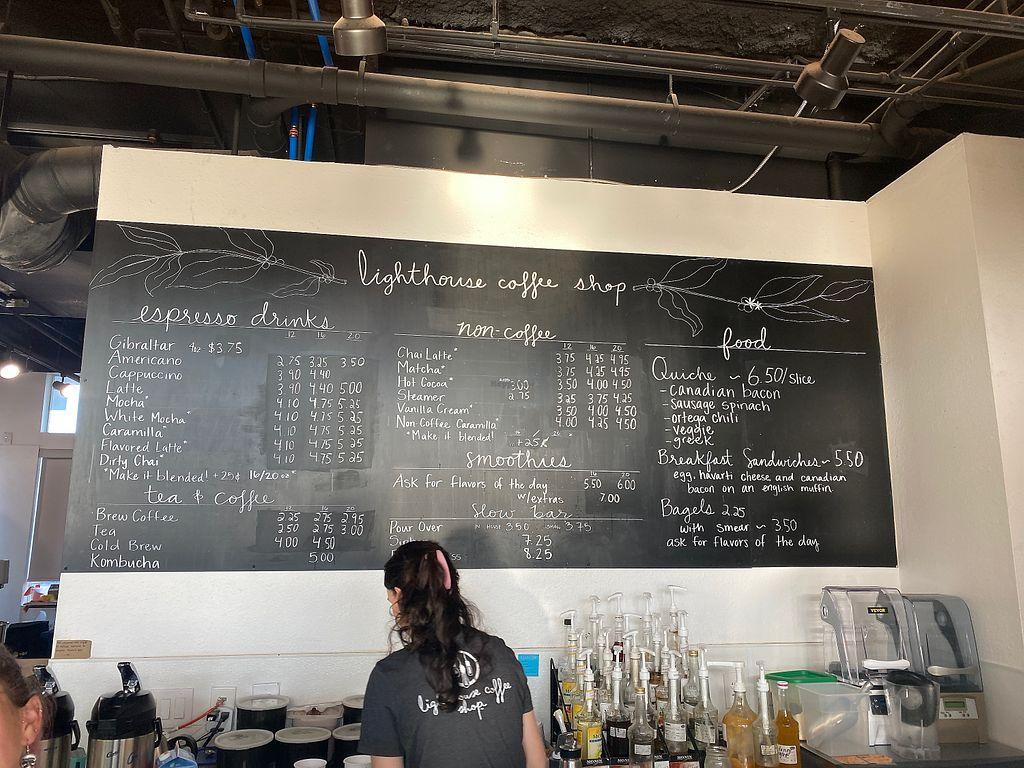 lighthouse coffee shop
espresso drinks
12 16 20
Gibraltar 4oz $3.75
Americano 2.75 3.25 3.50
Cappuccino 3.90 4.40
Latte 3.90 4.40 5.00
Mocha* 4.10 4.75 5.25
White Mocha* 4.10 4.75 5.25
Caramilla* 4.10 4.75 5.25
Flavored Latte* 4.10 4.75 5.25
Dirty Chai* 4.10 4.75 5.25
*Make it blended! +25¢ 16/20oz*
tea & coffee
Brew Coffee 2.25 2.75 2.95
Tea 2.50 2.75 3.00
Cold Brew 4.00 4.50
Kombucha 5.00
non-coffee
12 16 20
Chai Latte* 3.75 4.25 4.95
Matcha* 3.75 4.25 4.95
Hot Cocoa* 3.00 3.50 4.00 4.50
Steamer 2.75 3.25 3.75 4.25
Vanilla Cream* 3.50 4.00 4.50
Non-Coffee Caramilla* 4.00 4.25 4.50
*Make it blended! +25¢
smoothies
16 20
Ask for flavors of the day 5.50 6.00
w/extras 7.00
slow bar
Pour Over IN HOUSE 3.50 3.75
7.25
8.25
food
Quiche ~ 6.50/slice
- canadian bacon
- sausage spinach
- ortega chili
- veggie
- greek
Breakfast Sandwiches ~ 5.50
egg, havarti cheese and canadian
bacon on an english muffin
Bagels 2.25
with smear ~ 3.50
ask for flavors of the day
lighthouse coffee
shop